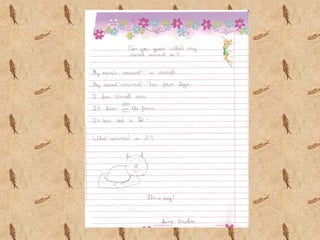 Can you guess what my
secret animal is?
My secret animal is small
My secret animal has four legs
I has small ears
It lives on the farm
It can eat a lot
What animal is it?
It's a pig!